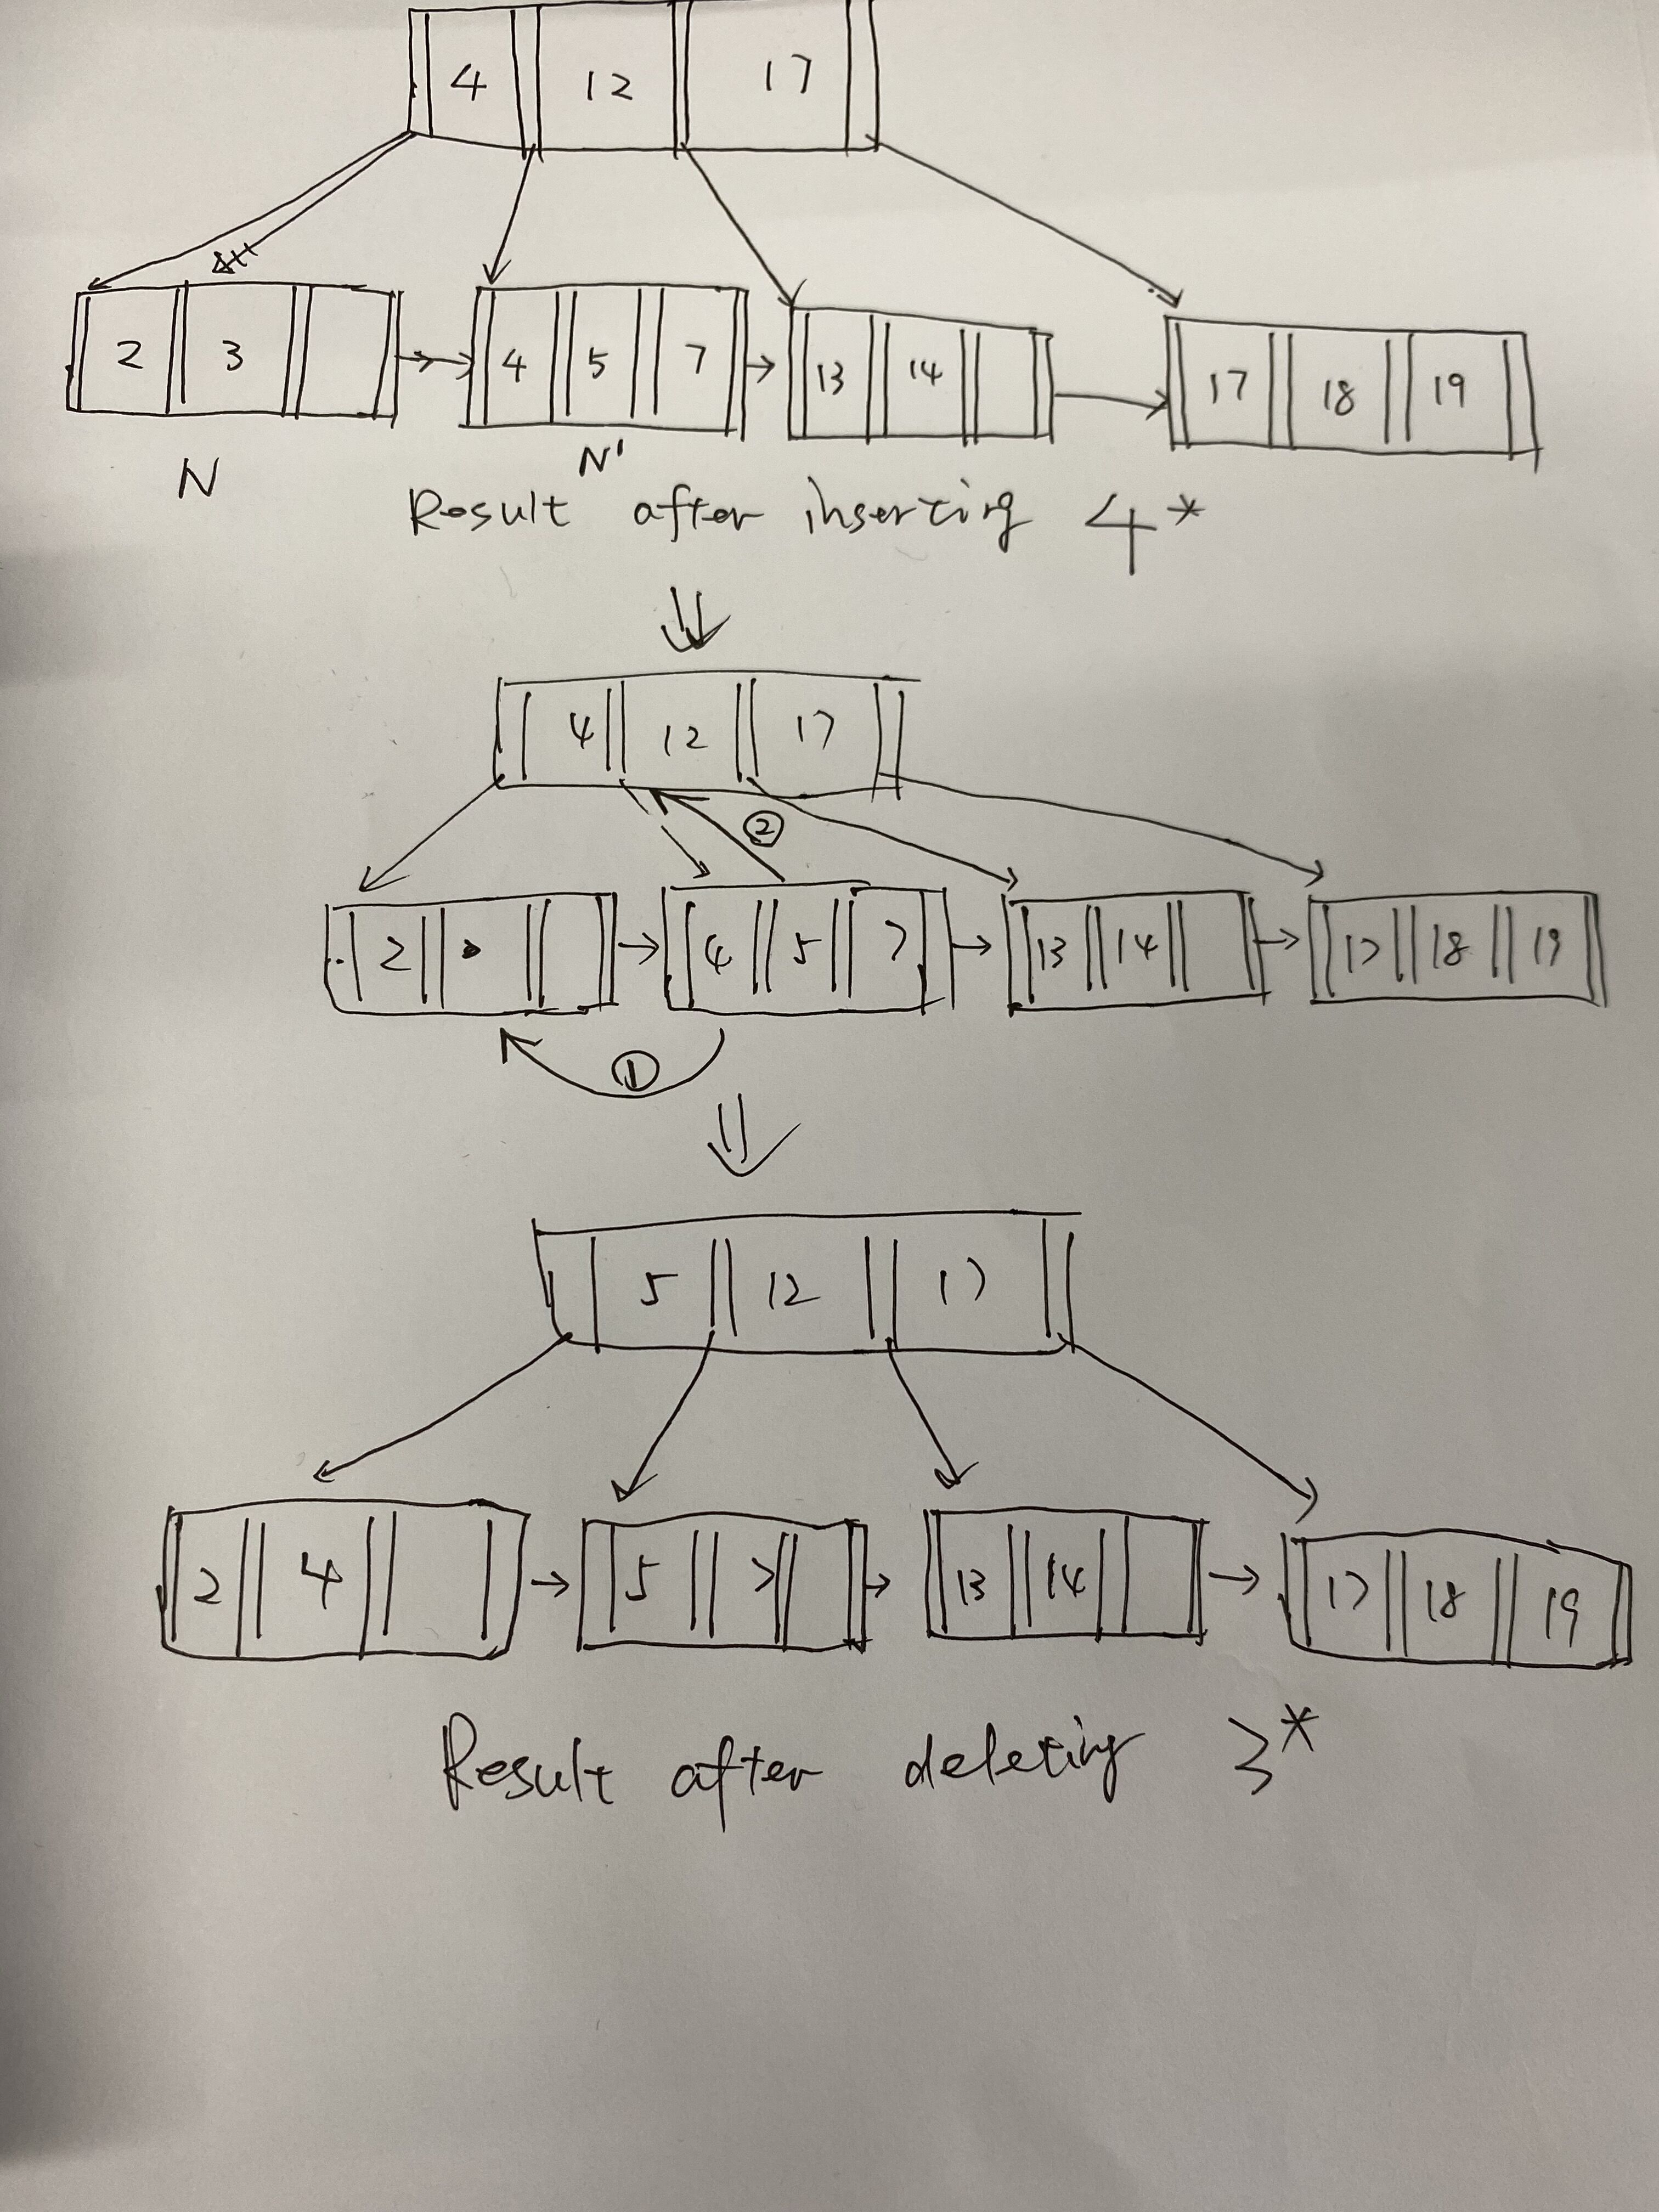 4 12 17
2 3 4 5 7 13 14 17 18 19
N N'
Result after inserting 4*
4 12 17
②
2 4 5 7 13 14 17 18 19
①
5 12 17
2 4 5 7 13 14 17 18 19
Result after deleting 3*